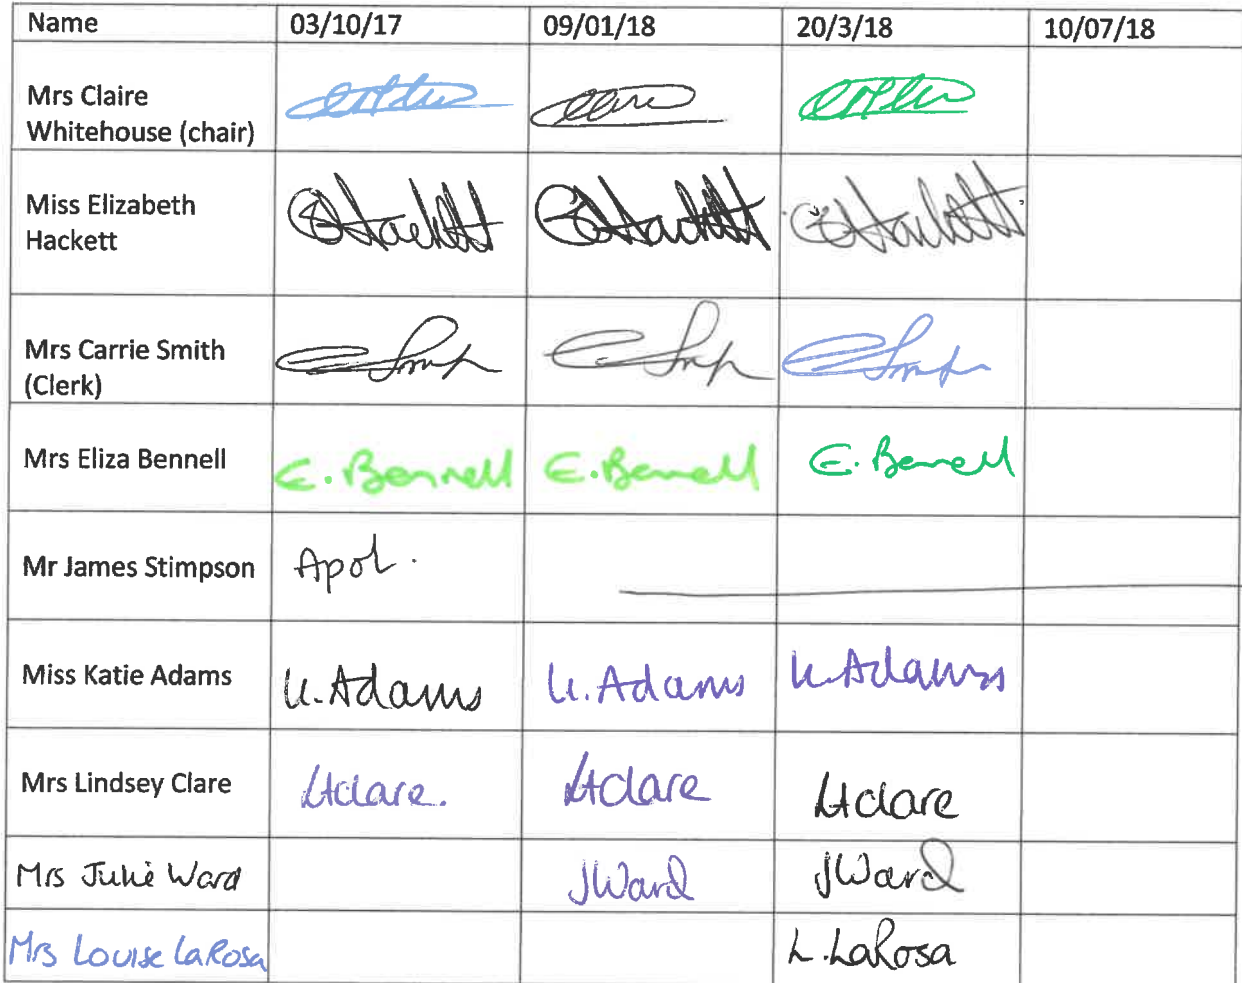 Name 03/10/17 09/01/18 20/3/18 10/07/18
Mrs Claire
Whitehouse (chair)
Miss Elizabeth
Hackett
EHackett EHackett EHackett
Mrs Carrie Smith
(Clerk)
Mrs Eliza Bennell E. Bennell E. Bennell E. Bennell
Mr James Stimpson Apol.
Miss Katie Adams K. Adams K. Adams K. Adams
Mrs Lindsey Clare LHClare. LHClare LHClare
Mrs Julie Ward JWard JWard
Mrs Louise LaRosa L. LaRosa